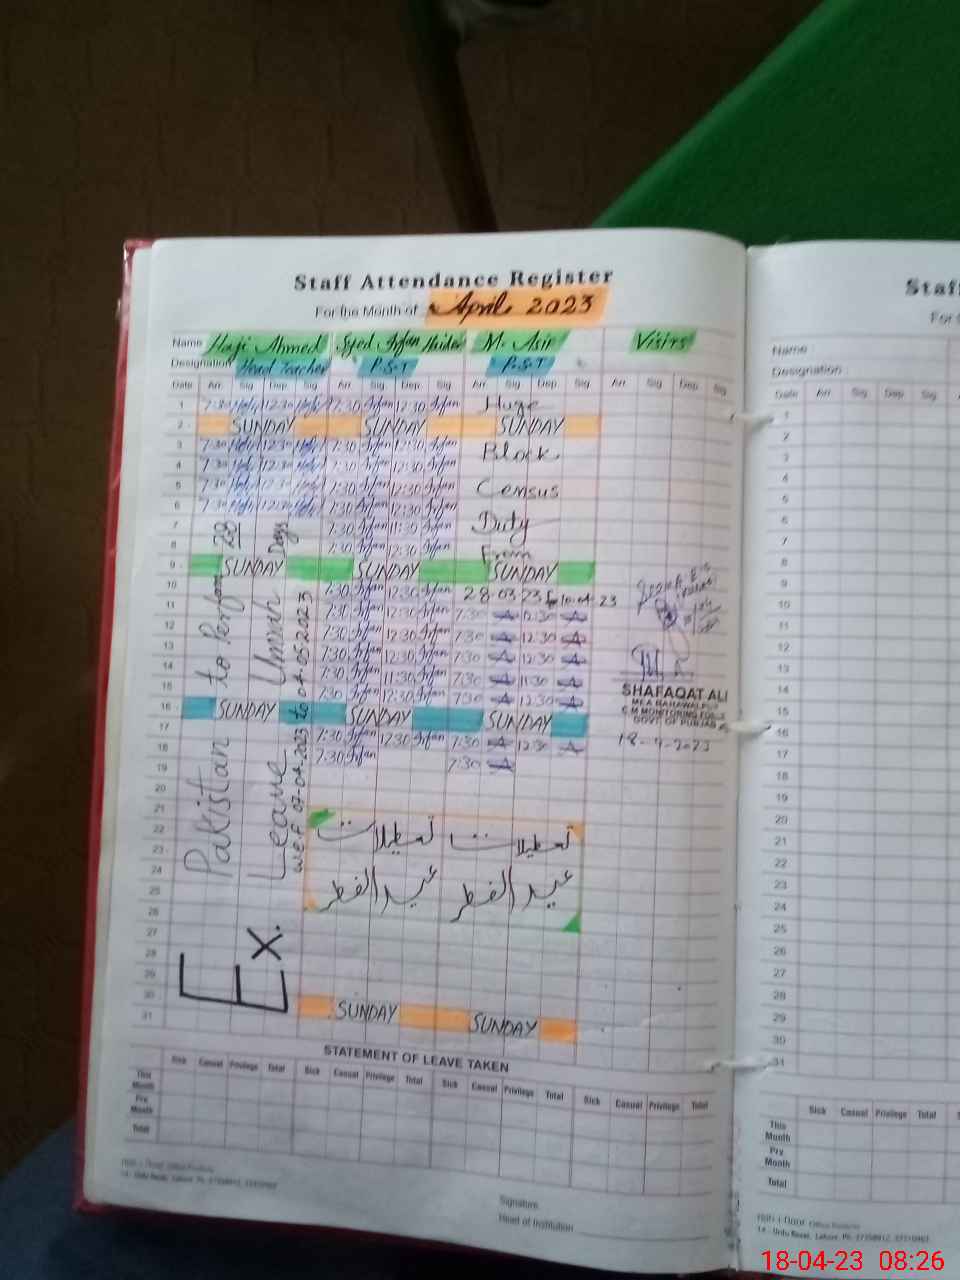 Staff Attendance Register
For the Month of April 2023
Name Haji Ahmed Syed Irfan Haider M. Asir Visits
Designation Head Teacher P.S.T P.S.T
Date Arr Sig Dep Sig Arr Sig Dep Sig Arr Sig Dep Sig Arr Sig Dep Sig
1 7:30 12:30 7:30 Irfan 12:30 Irfan Huge
2 SUNDAY SUNDAY SUNDAY
3 7:30 12:30 7:30 Irfan 12:30 Irfan Block
4 7:30 12:30 7:30 Irfan 12:30 Irfan
5 7:30 12:30 7:30 Irfan 12:30 Irfan Census
6 7:30 12:30 7:30 Irfan 12:30 Irfan
7 7:30 Irfan 11:30 Irfan Duty
8 7:30 Irfan 12:30 Irfan From
9 SUNDAY SUNDAY SUNDAY
10 7:30 Irfan 12:30 Irfan 28-03-23 to 10-04-23
11 7:30 Irfan 12:30 Irfan 7:30 12:30
12 7:30 Irfan 12:30 Irfan 7:30 12:30
13 7:30 Irfan 12:30 Irfan 7:30 12:30
14 7:30 Irfan 11:30 Irfan 7:30 11:30
15 7:30 Irfan 12:30 Irfan 7:30 12:30
16 SUNDAY SUNDAY SUNDAY
17 7:30 Irfan 12:30 Irfan 7:30 12:30
18 7:30 Irfan 7:30
19
20
21
22
23
24
25
26
27
28
29
30 SUNDAY SUNDAY
31
Ex. Pakistan to Perform 28
Leave Umrah Days
w.e.f 07-04-2023 to 04-05-2023
تعطیلات تعطیلات
عید الفطر عید الفطر
SHAFAQAT ALI
MEA BAHAWALPUR
C M MONITORING FORCE
GOVT OF PUNJAB
18-4-2023
STATEMENT OF LEAVE TAKEN
Sick Casual Privilege Total Sick Casual Privilege Total Sick Casual Privilege Total Sick Casual Privilege Total
This Month
Prv. Month
Total
14 - Urdu Bazar, Lahore. Ph:
Signature
Head of Institution
Staf
For
Name
Designation
Date Arr Sig Dep Sig
1
2
3
4
5
6
7
8
9
10
11
12
13
14
15
16
17
18
19
20
21
22
23
24
25
26
27
28
29
30
31
Sick Casual Privilege Total
This Month
Prv. Month
Total
14 - Urdu Bazar, Lahore. Ph:
18-04-23 08:26